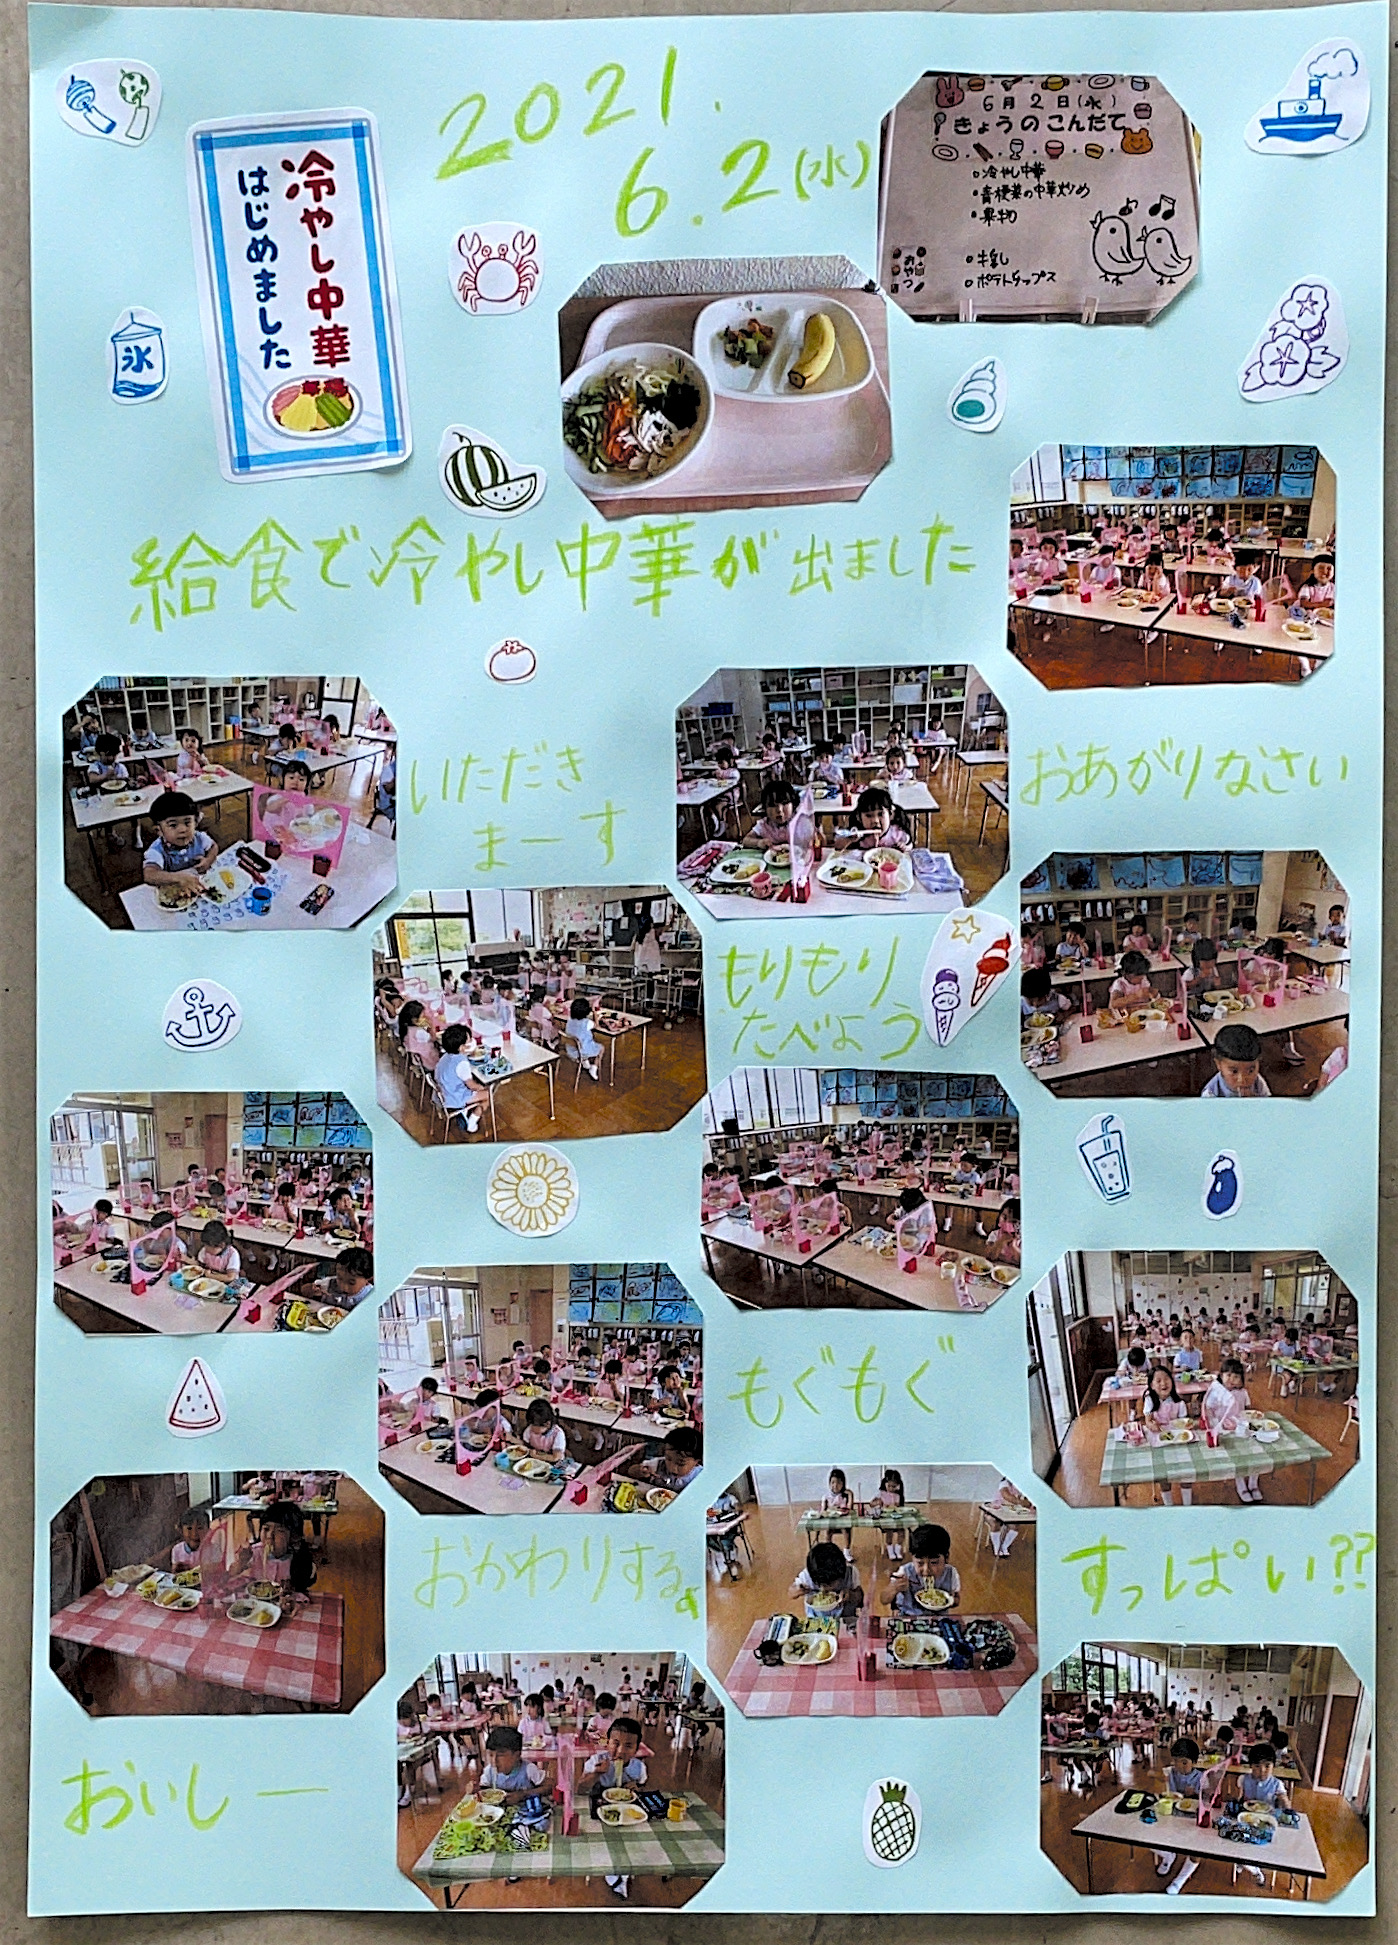 2021.
6.2(水)
冷やし中華
はじめました
6月2日(水)
きょうのこんだて
○冷やし中華
•青梗菜の中華炒め
•果物
おやつ
○牛乳
○ポテトチップス
氷
給食で冷やし中華が出ました
いただき
まーす
おあがりなさい
もりもり
たべよう
もぐもぐ
おかわりする。
すっぱい??
おいしー